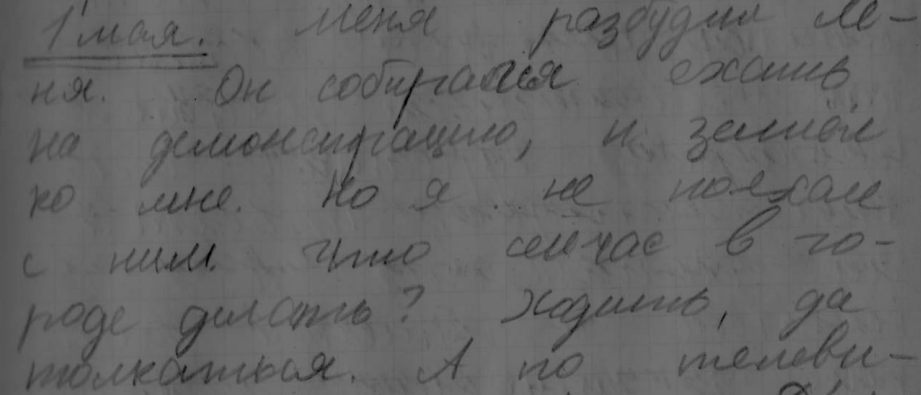 1 мая. Меня разбудил Лё-
ня. Он собирался ехать
на демонстрацию, и зашёл
ко мне. Но я не поехал
с ним. Что сейчас в го-
роде делать? Ходить, да
толкаться. А по телеви-